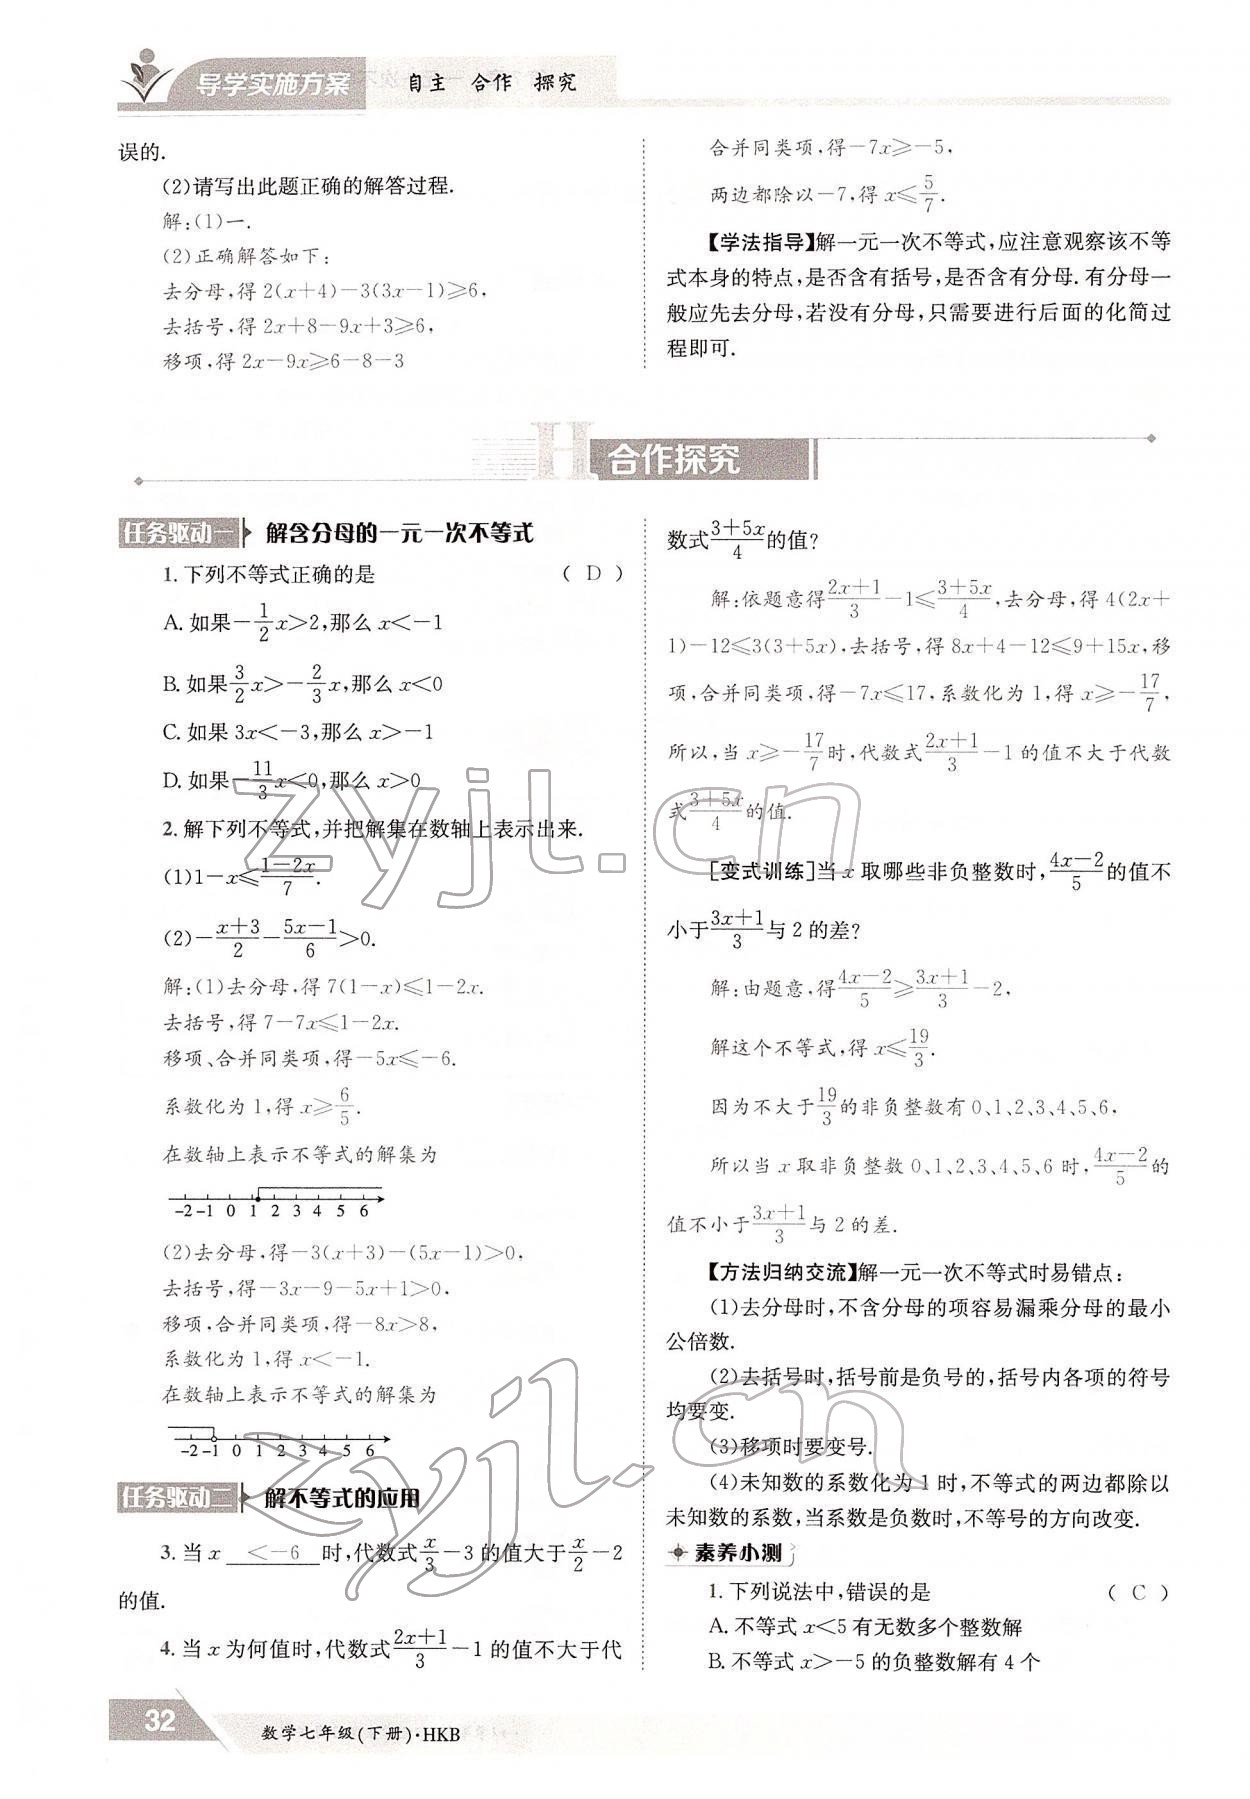 导学实施方案 自主 合作 探究
误的.
(2)请写出此题正确的解答过程.
解:(1)一.
(2)正确解答如下:
去分母,得 2(x+4)-3(3x-1)≥6,
去括号,得 2x+8-9x+3≥6,
移项,得 2x-9x≥6-8-3
合并同类项,得-7x≥-5,
两边都除以-7,得 x≤5/7.
【学法指导】解一元一次不等式,应注意观察该不等
式本身的特点,是否含有括号,是否含有分母.有分母一
般应先去分母,若没有分母,只需要进行后面的化简过
程即可.
H 合作探究
任务驱动一 解含分母的一元一次不等式
1.下列不等式正确的是 ( D )
A.如果-1/2x>2,那么 x<-1
B.如果3/2x>-2/3x,那么 x<0
C.如果 3x<-3,那么 x>-1
D.如果-11/3x<0,那么 x>0
2.解下列不等式,并把解集在数轴上表示出来.
(1)1-x≤(1-2x)/7.
(2)-(x+3)/2-(5x-1)/6>0.
解:(1)去分母,得 7(1-x)≤1-2x.
去括号,得 7-7x≤1-2x.
移项、合并同类项,得-5x≤-6.
系数化为 1,得 x≥6/5.
在数轴上表示不等式的解集为
-2 -1 0 1 2 3 4 5 6
(2)去分母,得-3(x+3)-(5x-1)>0,
去括号,得-3x-9-5x+1>0,
移项,合并同类项,得-8x>8,
系数化为 1,得 x<-1.
在数轴上表示不等式的解集为
-2 -1 0 1 2 3 4 5 6
任务驱动二 解不等式的应用
3.当 x <-6 时,代数式x/3-3 的值大于x/2-2
的值.
4.当 x 为何值时,代数式(2x+1)/3-1 的值不大于代
数式(3+5x)/4的值?
解:依题意得(2x+1)/3-1≤(3+5x)/4,去分母,得 4(2x+
1)-12≤3(3+5x),去括号,得 8x+4-12≤9+15x,移
项,合并同类项,得-7x≤17,系数化为 1,得 x≥-17/7,
所以,当 x≥-17/7时,代数式(2x+1)/3-1 的值不大于代数
式(3+5x)/4的值.
[变式训练]当 x 取哪些非负整数时,(4x-2)/5的值不
小于(3x+1)/3与 2 的差?
解:由题意,得(4x-2)/5≥(3x+1)/3-2,
解这个不等式,得 x≤19/3.
因为不大于19/3的非负整数有 0、1、2、3、4、5、6,
所以当 x 取非负整数 0、1、2、3、4、5、6 时,(4x-2)/5的
值不小于(3x+1)/3与 2 的差.
【方法归纳交流】解一元一次不等式时易错点:
(1)去分母时,不含分母的项容易漏乘分母的最小
公倍数.
(2)去括号时,括号前是负号的,括号内各项的符号
均要变.
(3)移项时要变号.
(4)未知数的系数化为 1 时,不等式的两边都除以
未知数的系数,当系数是负数时,不等号的方向改变.
素养小测
1.下列说法中,错误的是 ( C )
A.不等式 x<5 有无数多个整数解
B.不等式 x>-5 的负整数解有 4 个
32 数学七年级(下册)·HKB
zyjl.cn
zyjl.cn